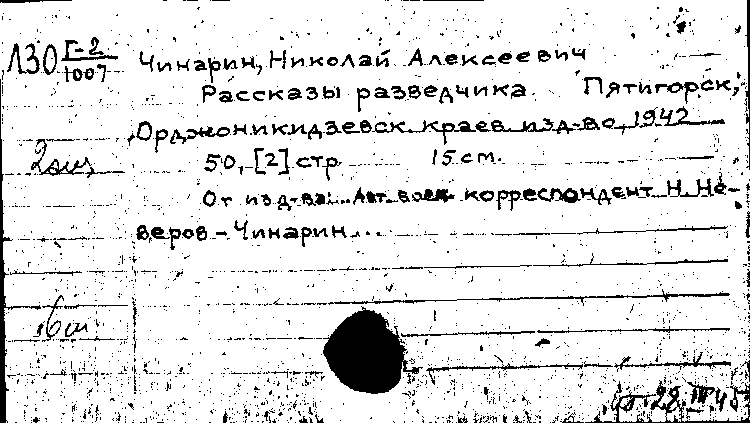 Л30 Г-2/1007
Чинарин, Николай Алексеевич
Рассказы разведчика. Пятигорск,
Орджоникидзевск. краев. изд-во, 1942
50, [2] стр 15 см.
От изд-ва: ... Авт. воен. корреспондент Н. Не-
веров - Чинарин ...
2 экз
28.III 45